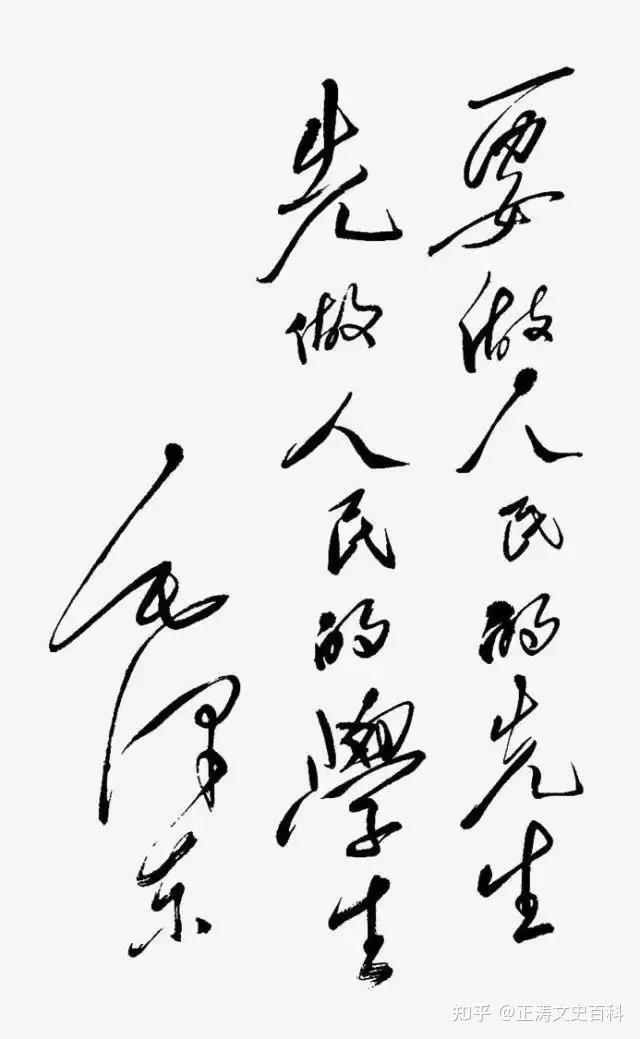 要做人民的先生
先做人民的學生
毛泽东
知乎 @正涛文史百科